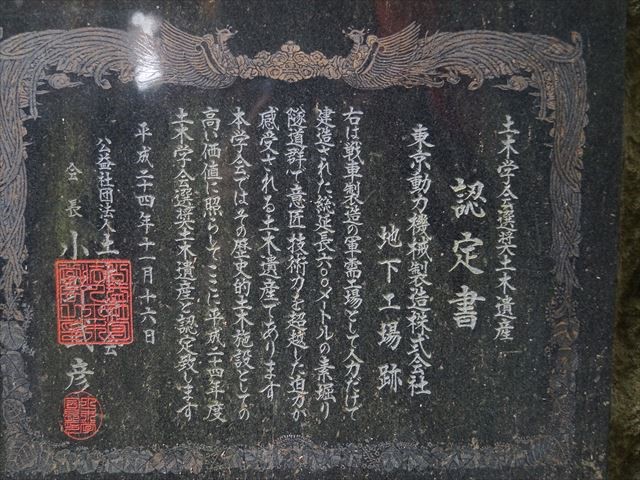 土木学会選奨土木遺産
認定書
東京動力機械製造株式会社
地下工場跡
右は戦車製造の軍需工場として人力だけで
建造された総延長六〇〇メートルの素堀り
隧道群で意匠、技術力を超越した迫力が
感受される土木遺産であります
本学会ではその歴史的土木施設としての
高い価値に照らしてここに平成二四年度
土木学会選奨土木遺産と認定致します
平成二四年十一月十六日
公益社団法人土 会
会長 小 武彦